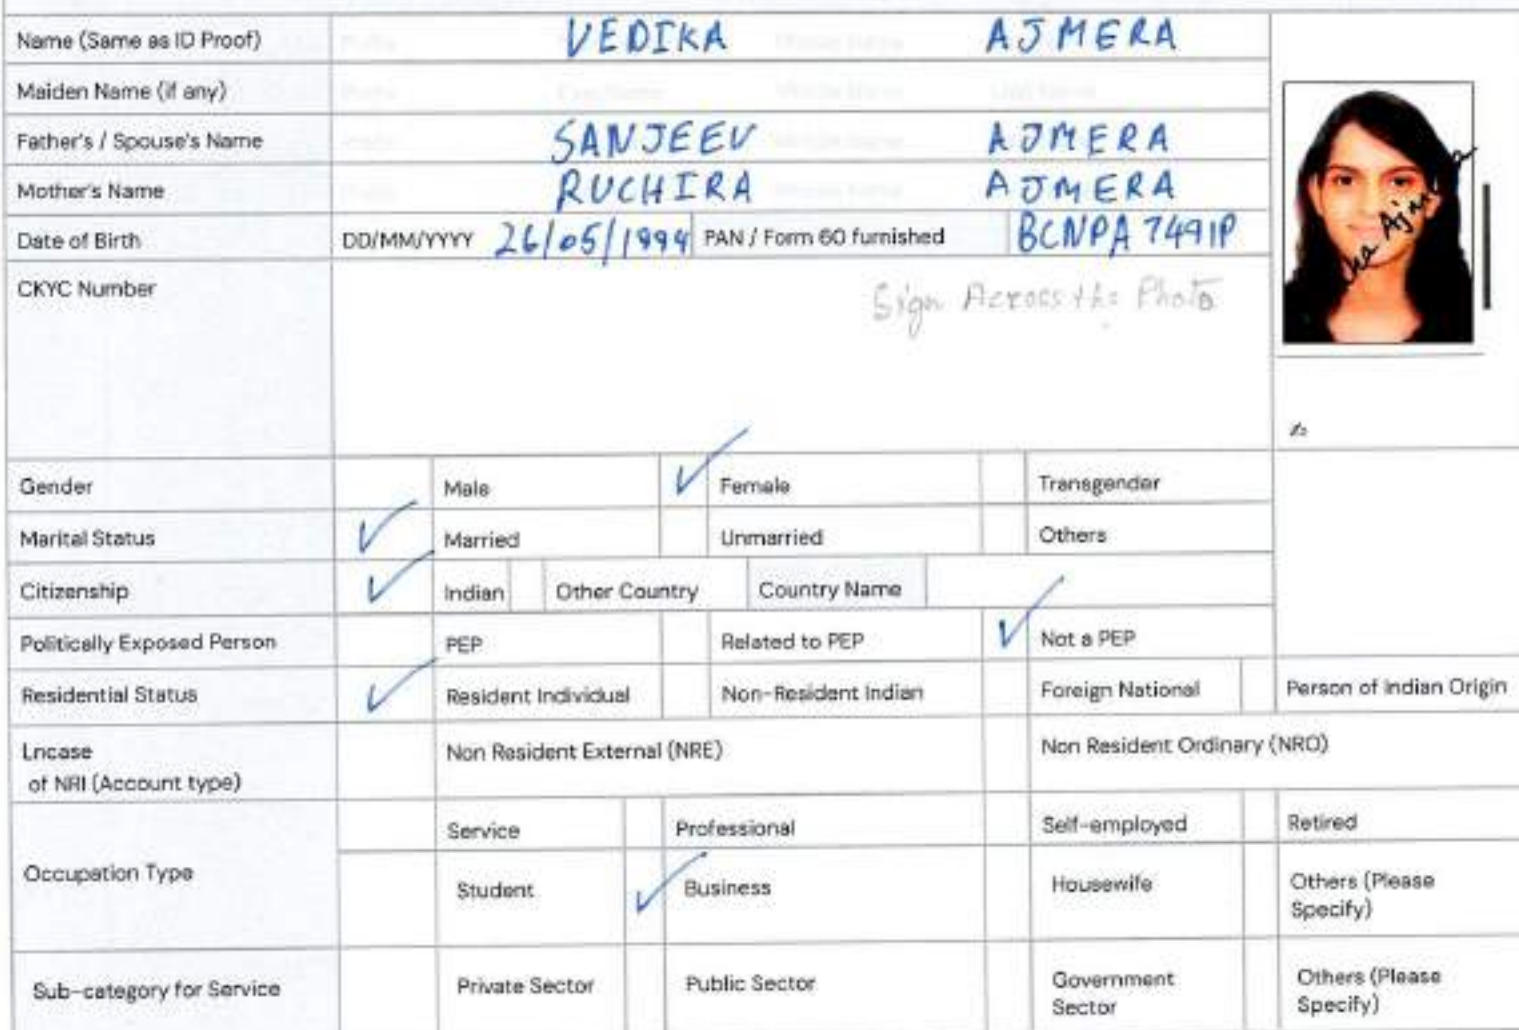 Name (Same as ID Proof) VEDIKA AJMERA
Maiden Name (if any)
Father's / Spouse's Name SANJEEV AJMERA
Mother's Name RUCHIRA AJMERA
Date of Birth DD/MM/YYYY 26/05/1994 PAN / Form 60 furnished BCNPA 7491P
CKYC Number Sign Across the Photo
Gender Male ✓ Female Transgender
Marital Status ✓ Married Unmarried Others
Citizenship ✓ Indian Other Country Country Name
Politically Exposed Person PEP Related to PEP ✓ Not a PEP
Residential Status ✓ Resident Individual Non-Resident Indian Foreign National Person of Indian Origin
Lncase Non Resident External (NRE) Non Resident Ordinary (NRO)
of NRI (Account type)
Service Professional Self-employed Retired
Occupation Type
Student ✓ Business Housewife Others (Please
Specify)
Sub-category for Service Private Sector Public Sector Government Others (Please
Sector Specify)